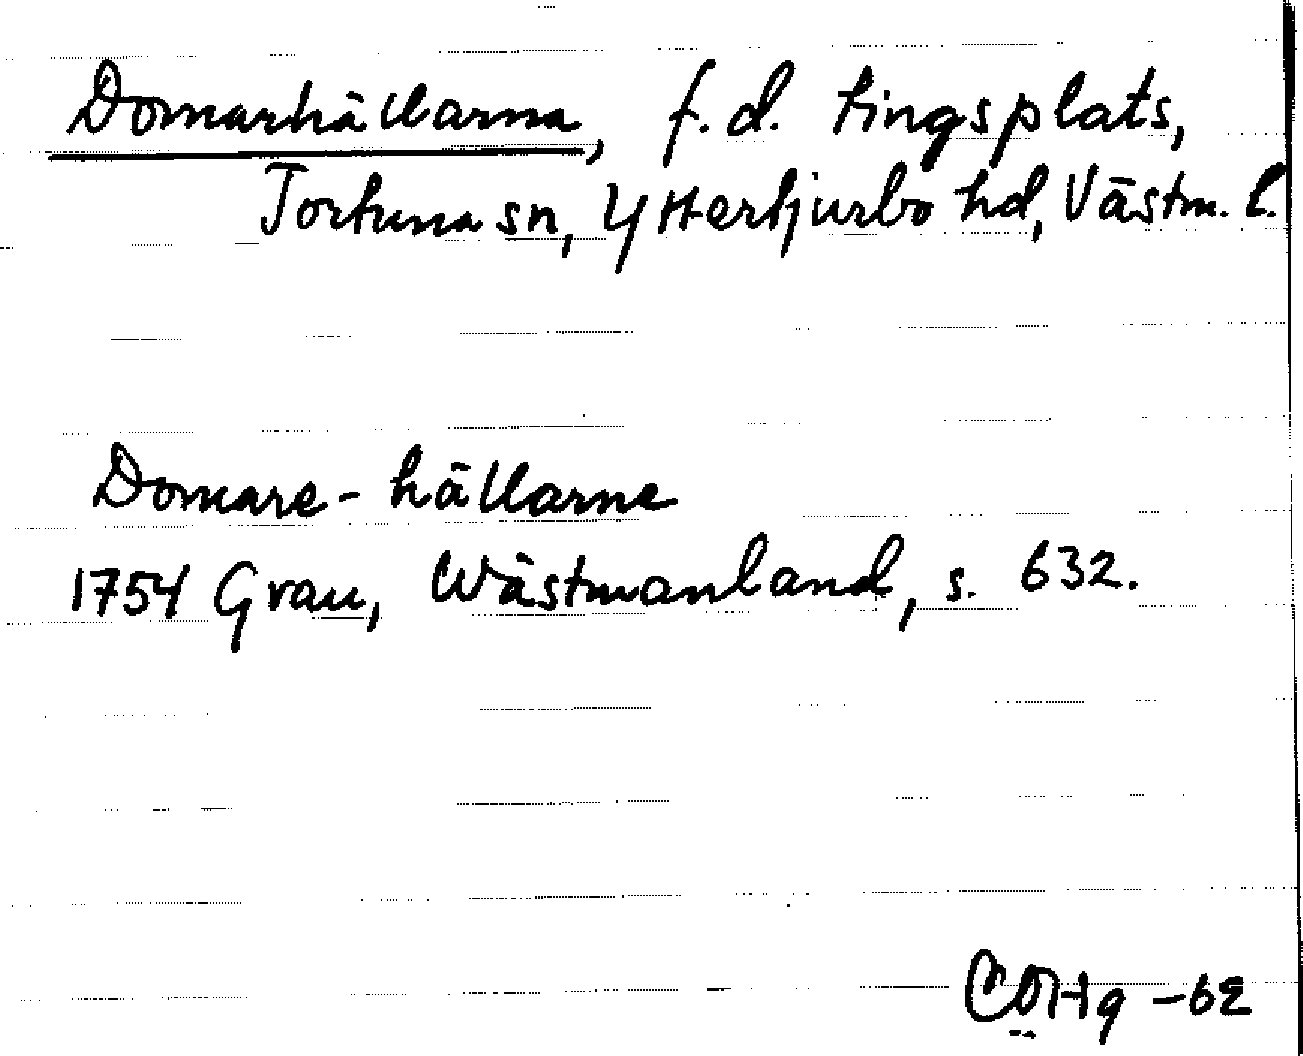 Domarhällarna, f.d. tingsplats,
Tortuna sn, Yttertjurbo hd, Västm. l.
Domare-hällarne
1754 Grau, Wästmanland, s. 632.
-62